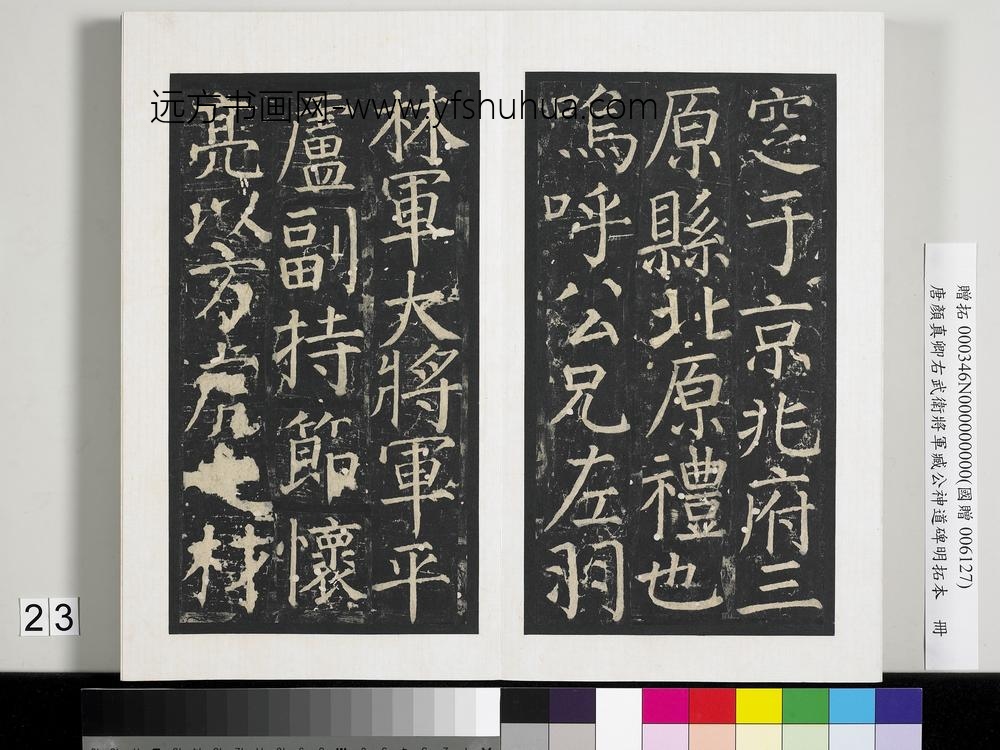 远方书画网-www.yfshuhua.com
窆于京兆府三
原縣北原禮也
嗚呼公兄左羽
林軍大將軍平
盧副持節懷
亮以方虎之材
贈拓 000346N000000000(國贈 006127)
唐顏真卿右武衛將軍臧公神道碑明拓本 冊
23